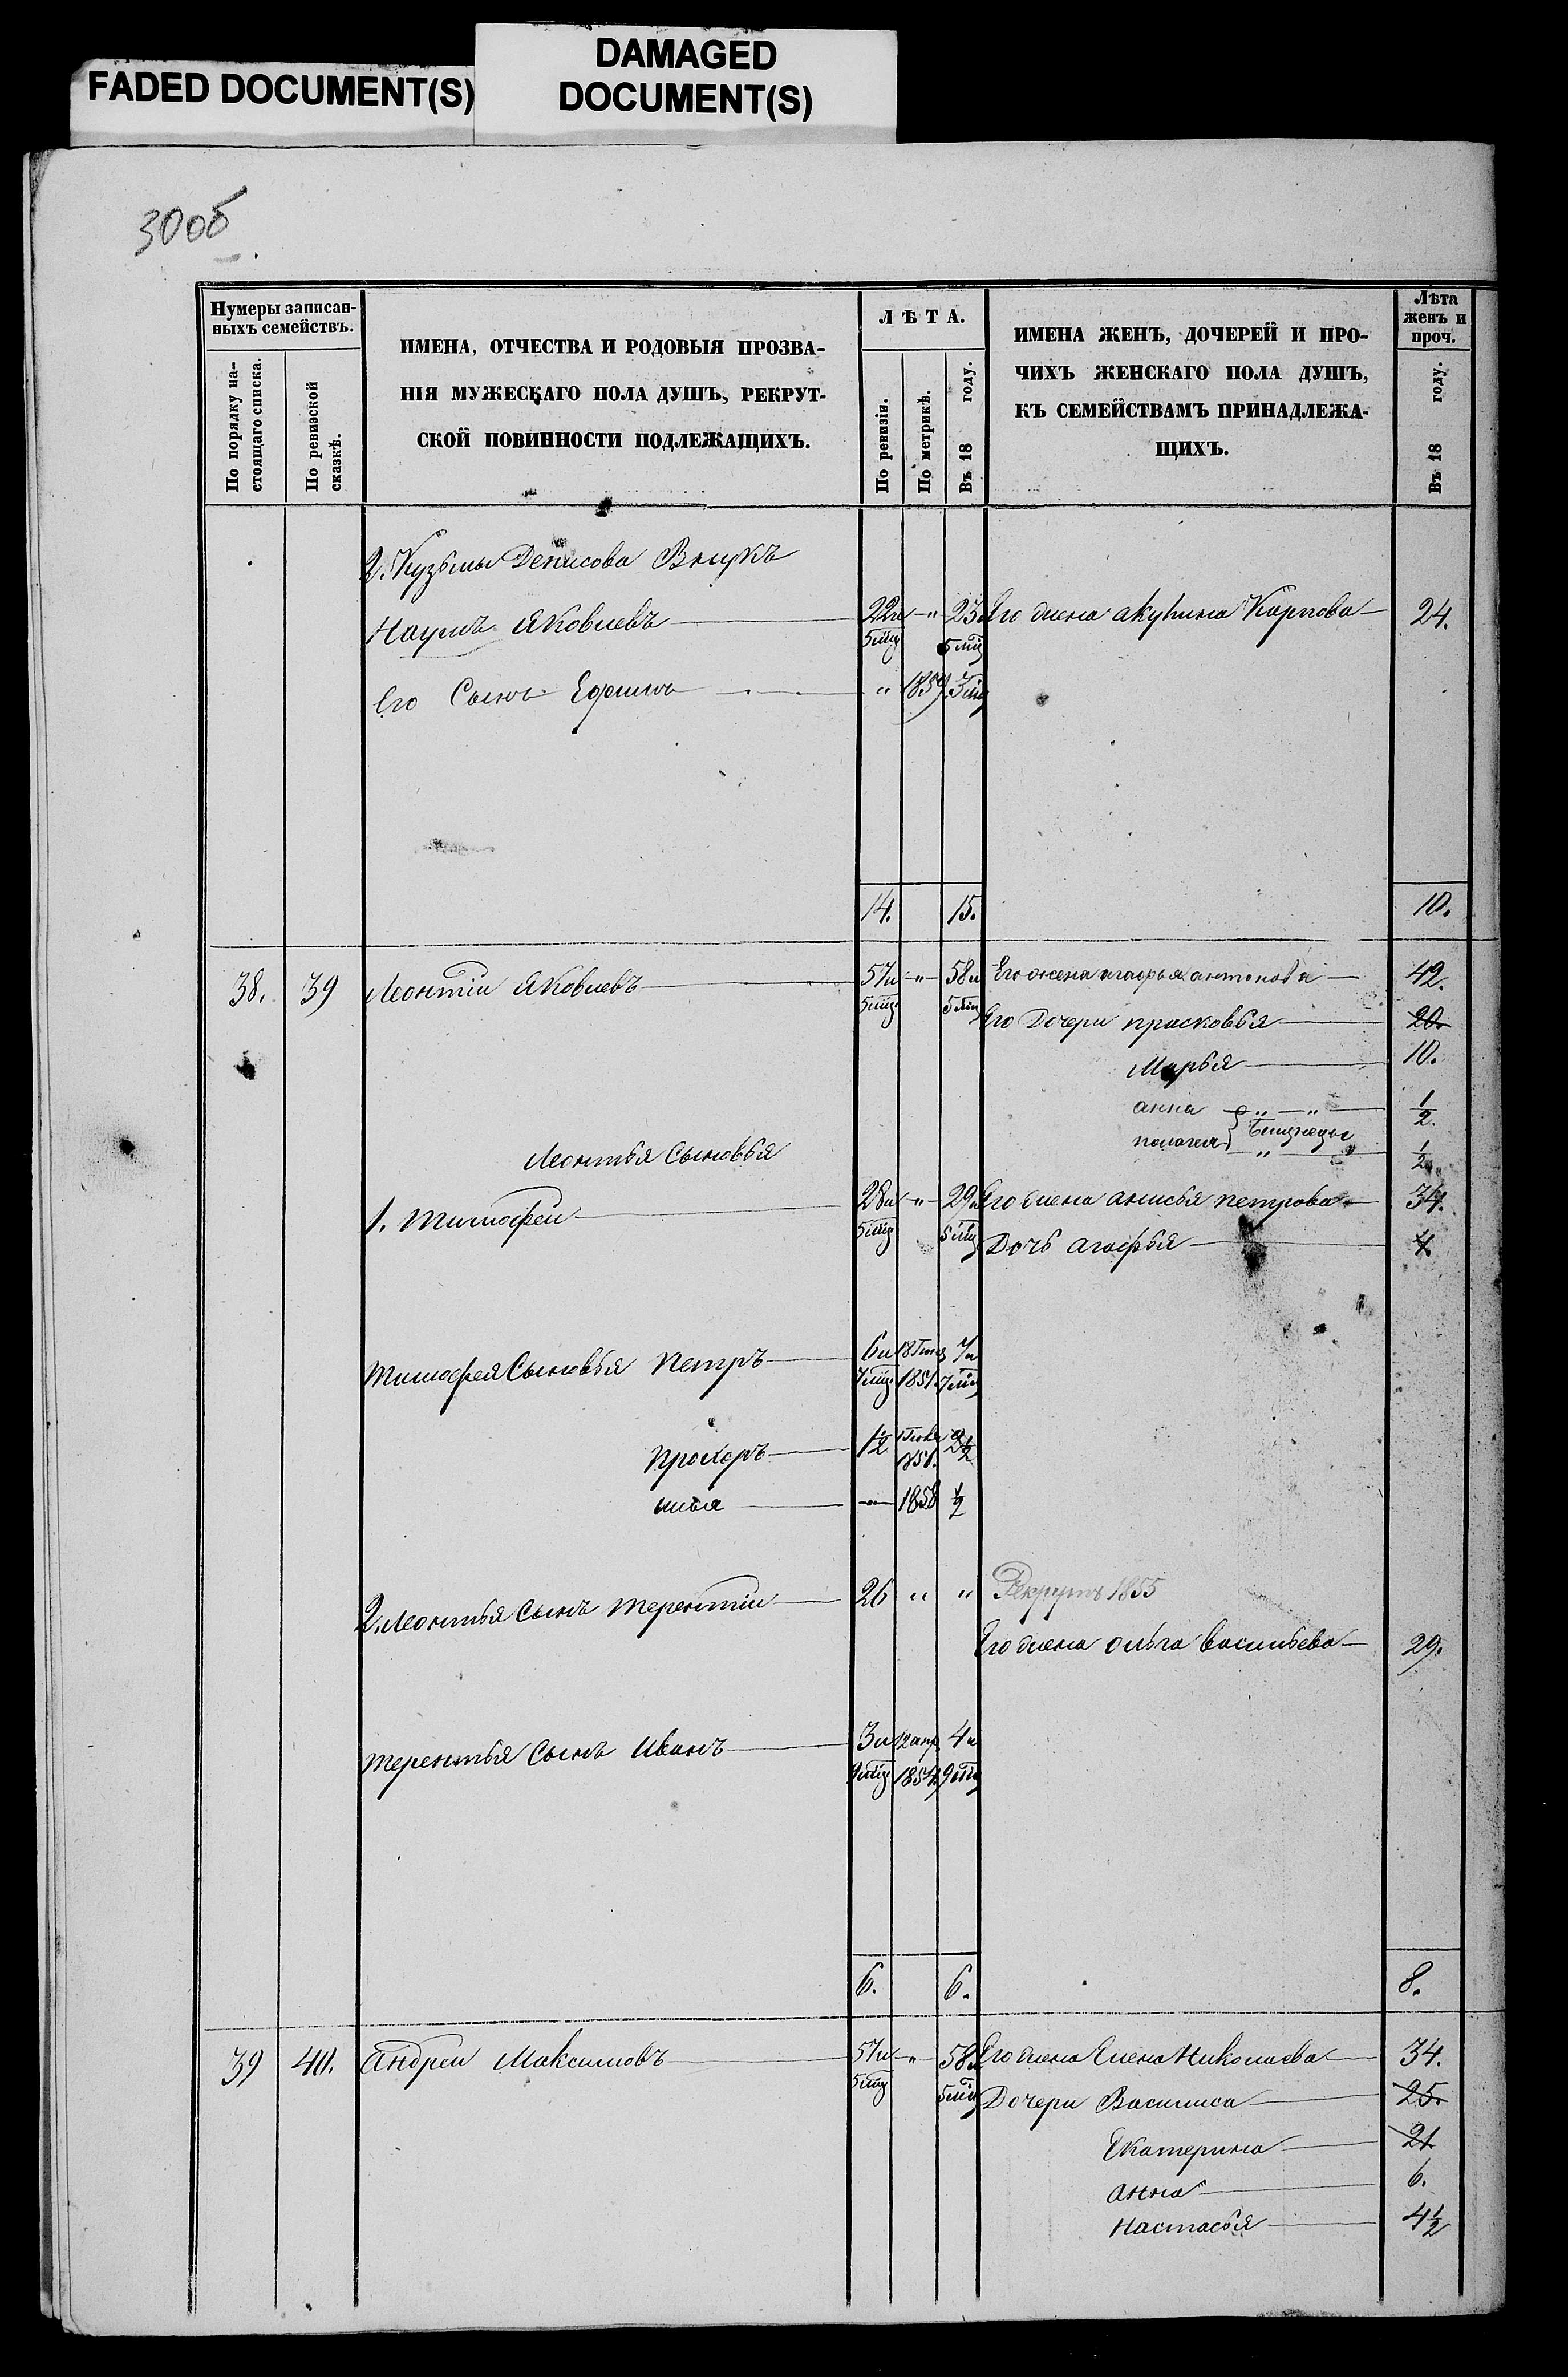 FADED DOCUMENT(S)
DAMAGED
DOCUMENT(S)
30об
Нумеры записан-
ныхъ семействъ.
По порядку на-
стоящаго списка.
По ревизской
сказкѣ.
ИМЕНА, ОТЧЕСТВА И РОДОВЫЯ ПРОЗВА-
НІЯ МУЖЕСКАГО ПОЛА ДУШЪ, РЕКРУТ-
СКОЙ ПОВИННОСТИ ПОДЛЕЖАЩИХЪ.
ЛѢТА.
По ревизіи.
По метрикѣ.
Въ 18 году.
ИМЕНА ЖЕНЪ, ДОЧЕРЕЙ И ПРО-
ЧИХЪ ЖЕНСКАГО ПОЛА ДУШЪ,
КЪ СЕМЕЙСТВАМЪ ПРИНАДЛЕЖА-
ЩИХЪ.
Лѣта
женъ и
проч.
Въ 18 году.
2. Кузьмы Денисова Внукъ
Наумъ Яковлевъ 22и " 23и Его жена акулина Карпова 24.
5 мц 5 мц
Его Сынъ Ефимъ " 1859 3 мц
14. 15. 10.
38. 39 Леонтіи Яковлевъ 57и " 58и Его жена агафья антонова 42.
5 мц 5 мц Его Дочери прасковья 20.
Марья 10.
анна " " 1/2.
Близнецы
палагея " 1/2
Леонтья Сыновья
1. Тимофеи 28и " 29и Его жена анисья петрова 34.
5 мц 5 мц Дочь агафья 4
Тимофея Сыновья Петръ 6и 18 7и
7 мц 1851. 7 мц
Прохоръ 1 1/2 2 1/2
илья " 1858 1/2
2. Леонтья Сынъ терентіи 26 " " Рекрутъ 1855
Его жена ольга васильева 29.
терентья Сынъ Иванъ 3и 12 апр 4и
9 мц 1854 9 мц
6. 6. 8.
39 40. Андреи Максимовъ 57и " 58и Его жена Елена Николаева 34.
5 мц 5 мц Дочери Василиса 25.
Екатерина 21
анна 6.
Настасья 4 1/2